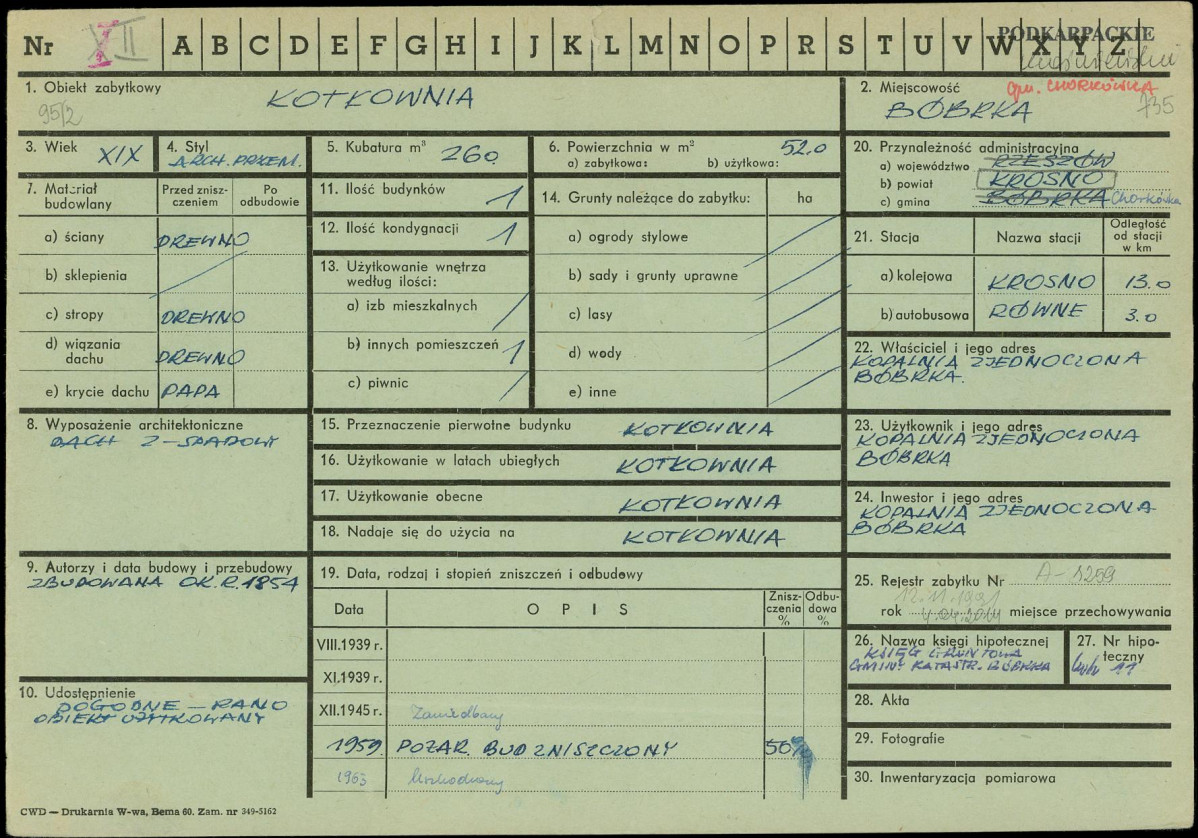 Nr XII A B C D E F G H I J K L M N O P R S T U V W X Y Z
PODKARPACKIE
1. Obiekt zabytkowy
KOTKOWNIA
95/2
2. Miejscowość
gm. CHORKÓWKA
BÓBRKA
735
3. Wiek XIX
4. Styl
ARCH. PRZEM.
5. Kubatura m³ 260
6. Powierzchnia w m² 52.0
a) zabytkowa: b) użytkowa:
7. Materiał budowlany
Przed zniszczeniem
Po odbudowie
a) ściany DREWNO
b) sklepienia
c) stropy DREWNO
d) wiązania dachu DREWNO
e) krycie dachu PAPA
8. Wyposażenie architektoniczne
DACH 2-SPADOWY
9. Autorzy i data budowy i przebudowy
ZBUDOWANA OK.R.1854
10. Udostępnienie
DOGODNE – RANO
OBIEKT UŻYTKOWANY
11. Ilość budynków 1
12. Ilość kondygnacji 1
13. Użytkowanie wnętrza
według ilości:
a) izb mieszkalnych
b) innych pomieszczeń 1
c) piwnic
14. Grunty należące do zabytku: ha
a) ogrody stylowe
b) sady i grunty uprawne
c) lasy
d) wody
e) inne
15. Przeznaczenie pierwotne budynku KOTKOWNIA
16. Użytkowanie w latach ubiegłych KOTKOWNIA
17. Użytkowanie obecne KOTKOWNIA
18. Nadaje się do użycia na KOTKOWNIA
19. Data, rodzaj i stopień zniszczeń i odbudowy
Data OPIS Zniszczenia % Odbudowa %
VIII.1939 r.
XI.1939 r.
XII.1945 r. Zaniedbany
1959. POŻAR. BUD ZNISZCZONY 50%
1963 Uszkodzony
20. Przynależność administracyjna
a) województwo RZESZÓW
b) powiat KROSNO
c) gmina BÓBRKA Chorkówka
21. Stacja
Nazwa stacji
Odległość od stacji w km
a) kolejowa KROSNO 13.0
b) autobusowa RÓWNE 3.0
22. Właściciel i jego adres
KOPALNIA ZJEDNOCZONA
BÓBRKA.
23. Użytkownik i jego adres
KOPALNIA ZJEDNOCZONA
BÓBRKA
24. Inwestor i jego adres
KOPALNIA ZJEDNOCZONA
BÓBRKA
25. Rejestr zabytku Nr A-1259
12.11.1991
rok 4.04.2014 miejsce przechowywania
26. Nazwa księgi hipotecznej
KSIĘG GRUNTOWA
GMINY KATASTR. BÓBRKA
27. Nr hipoteczny
Lwh 11
28. Akta
29. Fotografie
30. Inwentaryzacja pomiarowa
CWD — Drukarnia W-wa, Bema 60. Zam. nr 349-5162